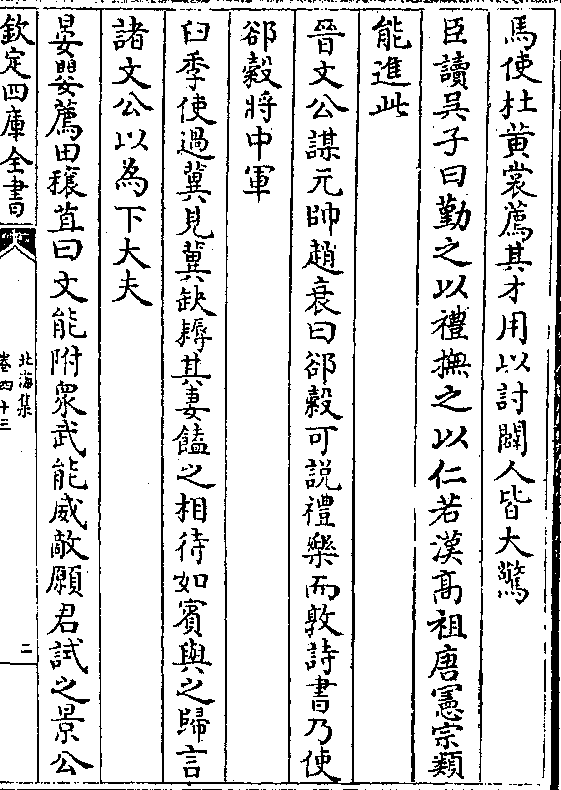 馬使杜黄裳薦其才用以討闢人皆大驚
臣讀吳子曰勤之以禮撫之以仁若漢高祖唐憲宗類
能進此
晉文公謀元帥趙衰曰郤縠可説禮樂而敦詩書乃使
郤縠將中軍
臼季使過冀見冀缺耨其妻饁之相待如賓與之歸言
諸文公以為下大夫
晏嬰薦田穰苴曰文能附衆武能威敵願君試之景公
欽定四庫全書
北海集
卷四十三
二